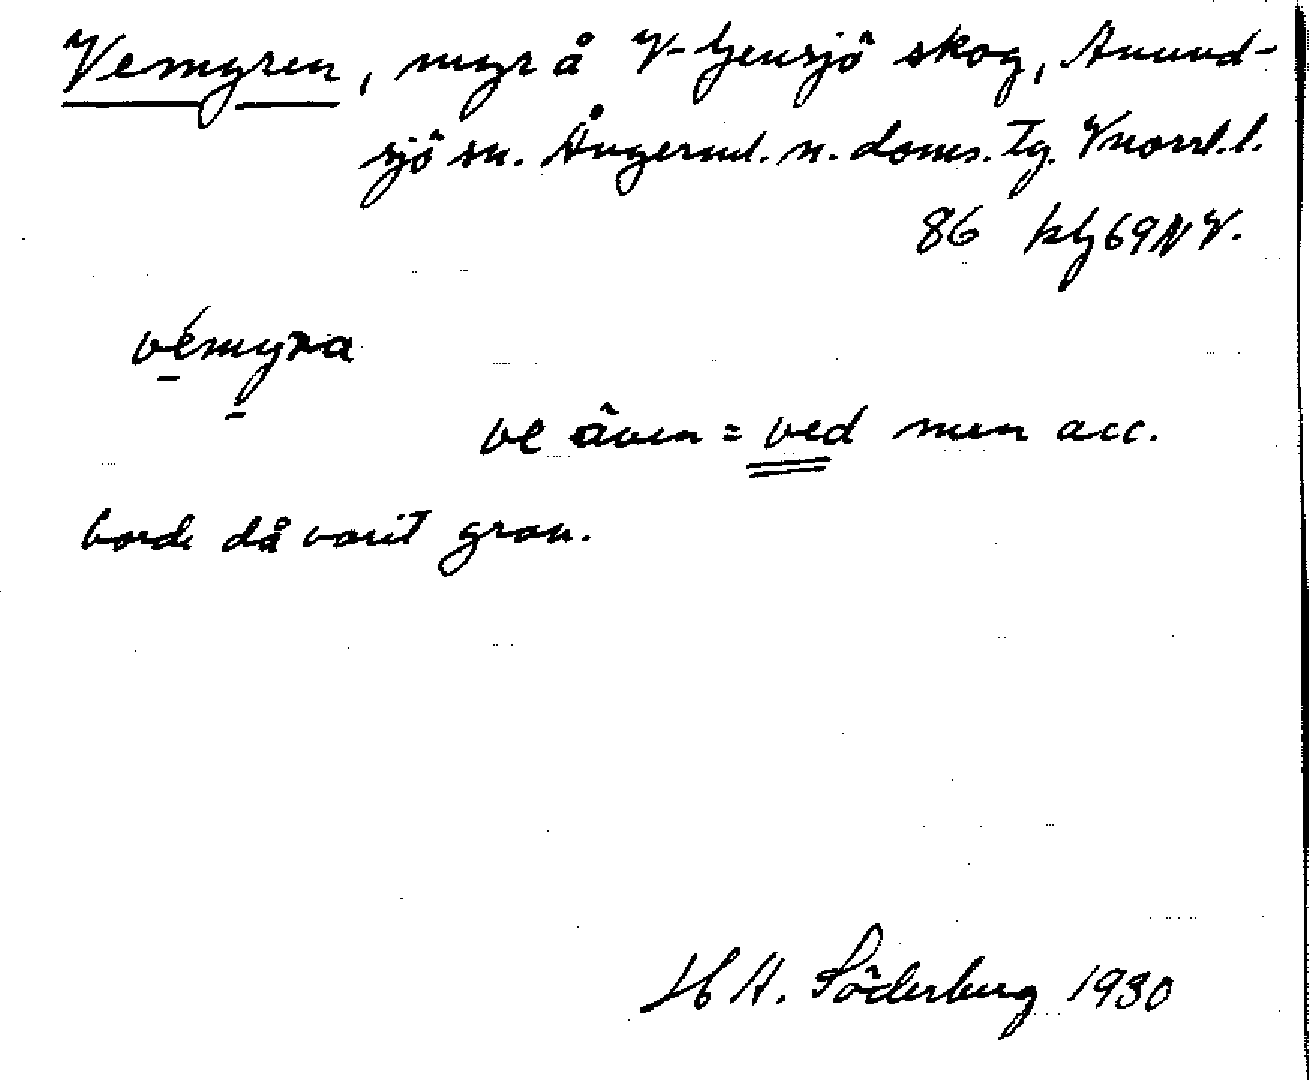 Vemyren, myr å V-Gensjö skog, Anund-
sjö sn. Ångerml. n. doms. Tg. Vnorrl.l.
86 kbg 69 NV.
vémyra
ve även = ved men acc.
borde då varit grav.
H A. Söderberg 1930